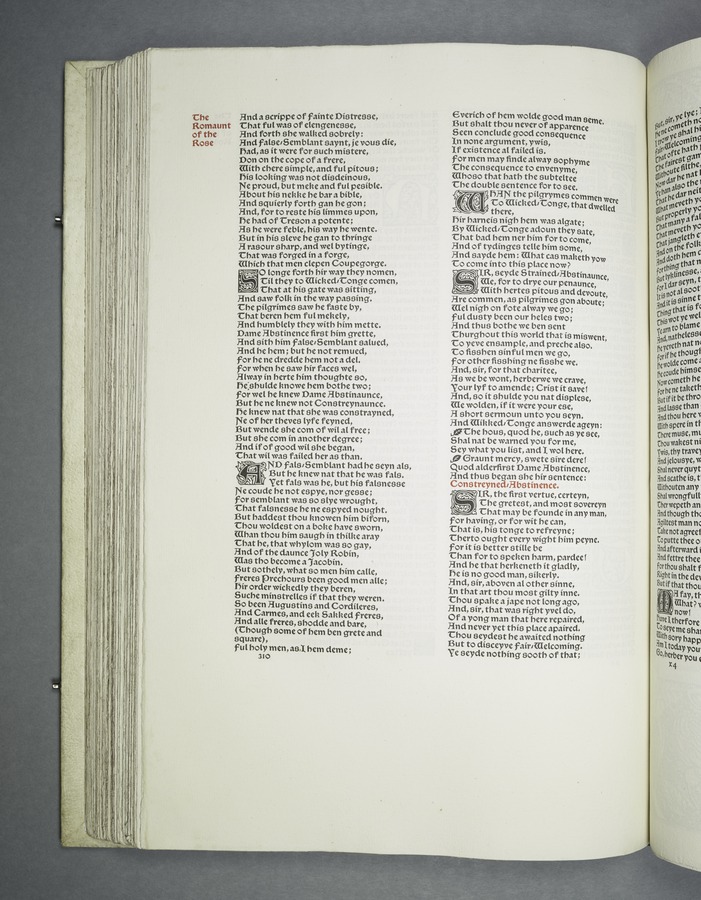 The
Romaunt
of the
Rose
And a scrippe of fainte Distresse,
That ful was of elengenesse,
And forth she walked sobrely:
And False-Semblant saynt, je vous die,
Had, as it were for such mistere,
Don on the cope of a frere,
With chere simple, and ful pitous;
His looking was not disdeinous,
Ne proud, but meke and ful pesible.
About his nekke he bar a bible,
And squierly forth gan he gon;
And, for to reste his limmes upon,
He had of Treson a potente;
As he were feble, his way he wente.
But in his sleve he gan to thringe
A rasour sharp, and wel bytinge,
That was forged in a forge,
Which that men clepen Coupegorge.
SO longe forth hir way they nomen,
Til they to Wicked-Tonge comen,
That at his gate was sitting,
And saw folk in the way passing.
The pilgrimes saw he faste by,
That beren hem ful mekely,
And humblely they with him mette.
Dame Abstinence first him grette,
And sith him False-Semblant salued,
And he hem; but he not remued,
For he ne dredde hem not a del.
For when he saw hir faces wel,
Alway in herte him thoughte so,
He shulde knowe hem bothe two;
For wel he knew Dame Abstinaunce,
But he ne knew not Constreynaunce.
He knew nat that she was constrayned,
Ne of her theves lyfe feyned,
But wende she com of wil al free;
But she com in another degree;
And if of good wil she began,
That wil was failed her as than.
AND Fals-Semblant had he seyn als,
But he knew nat that he was fals.
Yet fals was he, but his falsnesse
Ne coude he not espye, nor gesse;
For semblant was so slye wrought,
That falsnesse he ne espyed nought.
But haddest thou knowen him biforn,
Thou woldest on a boke have sworn,
Whan thou him saugh in thilke aray
That he, that whylom was so gay,
And of the daunce Joly Robin,
Was tho become a Jacobin.
But sothely, what so men him calle,
Freres Prechours been good men alle;
Hir order wickedly they beren,
Suche minstrelles if that they weren.
So been Augustins and Cordileres,
And Carmes, and eek Sakked Freres,
And alle freres, shodde and bare,
(Though some of hem ben grete and
square),
Ful holy men, as I hem deme;
210
Everich of hem wolde good man seme.
But shalt thou never of apparence
Seen conclude good consequence
In none argument, ywis,
If existence al failed is.
For men may finde alway sophyme
The consequence to envenyme,
Whoso that hath the subteltee
The double sentence for to see.
WHAN the pilgrymes commen were
To Wicked-Tonge, that dwelled
there,
Hir harneis nigh hem was algate;
By Wicked-Tonge adoun they sate,
That bad hem ner him for to come,
And of tydinges telle him some,
And sayde hem: What cas maketh yow
To come into this place now?
SIR, seyde Strained-Abstinaunce,
We, for to drye our penaunce,
With hertes pitous and devoute,
Are commen, as pilgrimes gon aboute;
Wel nigh on fote alway we go;
Ful dusty been our heles two;
And thus bothe we ben sent
Thurghout this world that is miswent,
To yeve ensample, and preche also.
To fisshen sinful men we go,
For other fisshing ne fisshe we.
And, sir, for that charitee,
As we be wont, herberwe we crave,
Your lyf to amende; Crist it save!
And, so it shulde you nat displese,
We wolden, if it were your ese,
A short sermoun unto you seyn.
And Wikked-Tonge answerde ageyn:
The hous, quod he, such as ye see,
Shal nat be warned you for me,
Sey what you list, and I wol here.
Graunt mercy, swete sire dere!
Quod alderfirst Dame Abstinence,
And thus began she hir sentence:
Constreyned-Abstinence.
SIR, the first vertue, certeyn,
The gretest, and most sovereyn
That may be founde in any man,
For having, or for wit he can,
That is, his tonge to refreyne;
Therto ought every wight him peyne.
For it is better stille be
Than for to speken harm, pardee!
And he that herkeneth it gladly,
He is no good man, sikerly.
And, sir, aboven al other sinne,
In that art thou most gilty inne.
Thou spake a jape not long ago,
And, sir, that was right yvel do,
Of a young man that here repaired,
And never yet this place apaired.
Thou seydest he awaited nothing
But to disceyve Fair-Welcoming.
Ye seyde nothing sooth of that;
x4